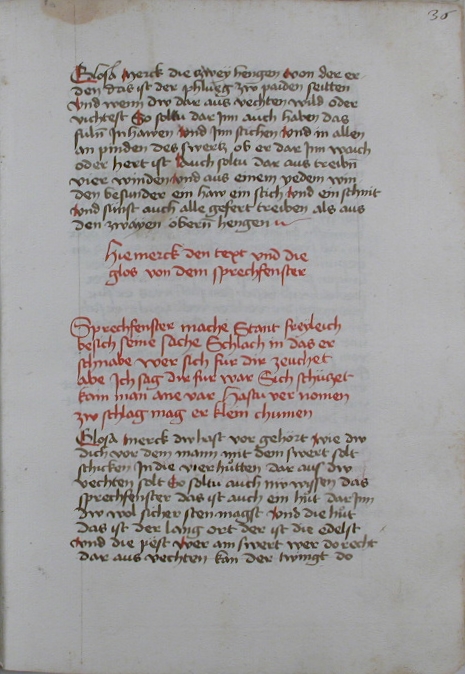 36
Glosa Merck die zwey hengen von der er-
den das ist der phlueg zw paiden seitten
Und wenn dw dar aus vechten wild oder
vichtest So soltu dar Inn auch haben das
fuln In hawen Und Inn stichen Und in allen
an pinden des swertz ob er dar Inn waich
oder hert ist Auch soltu dar aus treibn
vier winden Und aus einem yedem win
den besunder ein haw ein stich Und ein schnit
Und sunst auch alle gefert treiben als aus
den zwayen obern hengen
Hie merck den text vnd die
glos von dem sprechfenster
Sprechfenster mache Stant freyleich
besich seine sache Schlach in das er
schnabe wer sich fur dir zeuchet
abe Ich sag dir fur war Sich schützet
kain man ane var Hastu ver nomen
zw schlag mag er klein chumen
Glosa Merck dw hast vor gehört wie dw
dich vor dem mann mit dem swert solt
schicken In die vier hutten dar aus dw
vechten solt So soltu auch nw wissen das
sprechfenster das ist auch ein hut dar Inn
dw wol sicher sten magst Und die hut
das ist der lang ort der ist die edelst
Und die pest Wer am swert wer do recht
dar aus vechten kan der twingt do